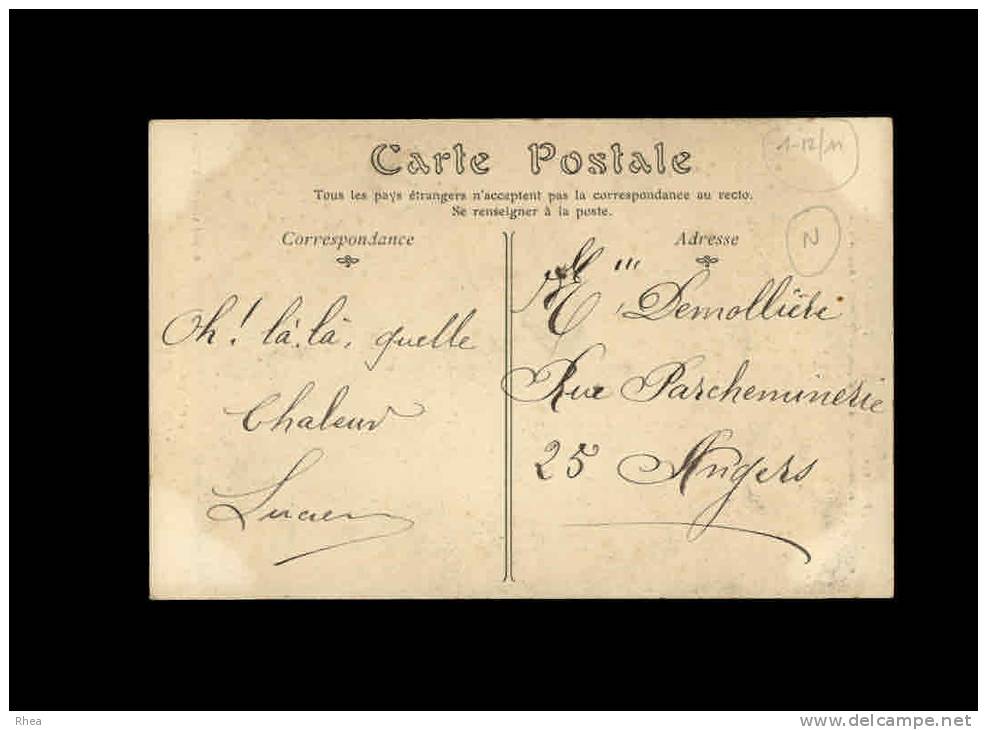 1-12/11
Carte Postale
Tous les pays étrangers n'acceptent pas la correspondance au recto.
Se renseigner à la poste.
Correspondance
Adresse
N
Oh! là, là, quelle
Chaleur
Lucien
Demollière
Rue Parcheminerie
25 Angers
Rhea
www.delcampe.net